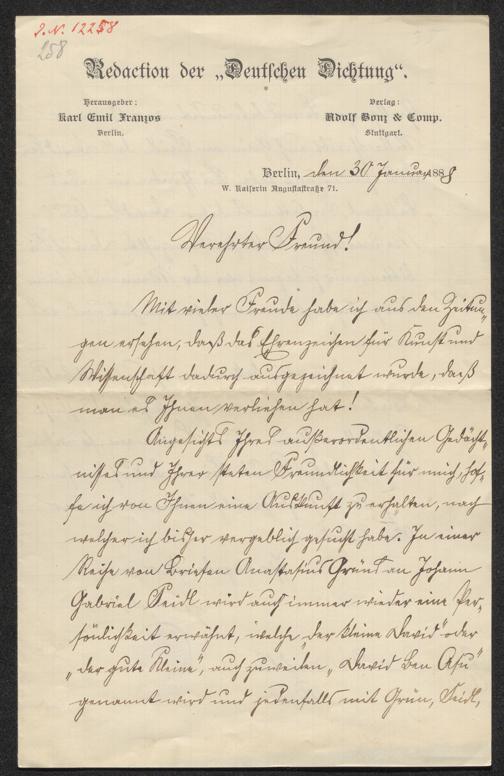 J. N. 12258
258
Redaction der „Deutschen Dichtung“.
Herausgeber:
Karl Emil Franzos
Berlin.
Verlag:
Adolf Bonz & Comp.
Stuttgart.
Berlin, den 30 Januar 1888
W. Kaiserin Augustastraße 71.
Verehrter Freund!
Mit vieler Freude habe ich aus den Zeitun-
gen ersehen, daß das Ehrenzeichen für Kunst und
Wissenschaft dadurch ausgezeichnet wurde, daß
man es Ihnen verliehen hat!
Angesichts Ihres außerordentlichen Gedächt-
nisses und Ihrer steten Freundlichkeit für mich, hof-
fe ich von Ihnen eine Auskunft zu erhalten, nach
welcher ich bisher vergeblich gesucht habe. In einer
Reihe von Briefen Anastasius Grüns an Johann
Gabriel Seidl wird auch immer wieder eine Per-
sönlichkeit erwähnt, welche „der kleine David“ oder
„der gute Kleine“, auch zuweilen „David Ben Asu“
genannt wird und jedenfalls mit Grün, Seidl,